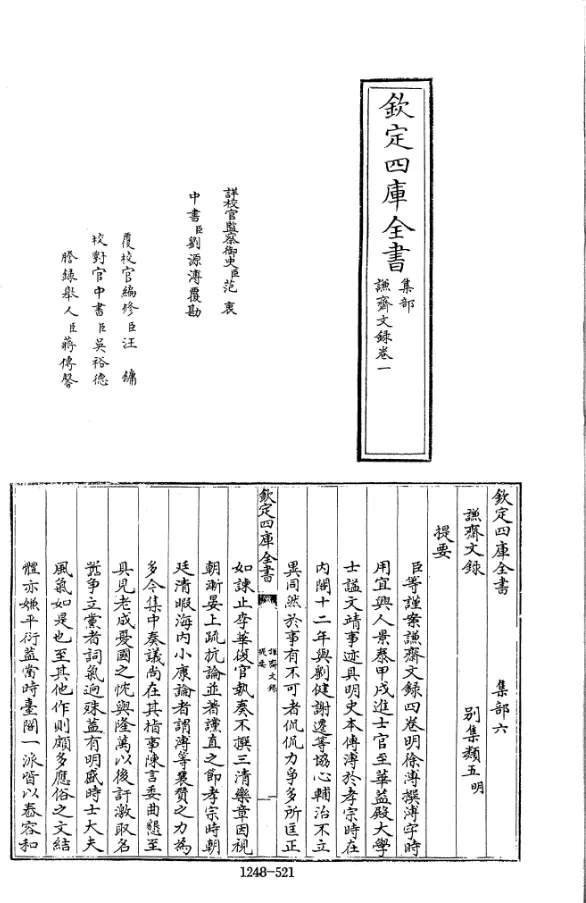 欽定四庫全書
集部
謙齋文錄卷一
詳校官監察御史臣范衷
中書臣劉源溥覆勘
覆校官編修臣汪鏞
校對官中書臣吳裕德
謄錄舉人臣蔣傳馨
欽定四庫全書
集部六
謙齋文錄
別集類五明
提要
臣等謹案謙齋文錄四卷明徐溥撰溥字時
用宜興人景泰甲戌進士官至華蓋殿大學
士諡文靖事迹具明史本傳溥於孝宗時在
內閣十二年與劉健謝遷等協心輔治不立
異同然於事有不可者侃侃力爭多所匡正
欽定四庫全書
謙齋文錄
提要
一
如諫止李華復官執奏不撰三清樂章因視
朝漸晏上疏抗論並著讜直之節孝宗時朝
廷清暇海內小康論者謂溥等襄贊之力為
多今集中奏議尚在其指事陳言委曲懇至
具見老成憂國之忱與隆萬以後訐激取名
嚣爭立黨者詞氣迥殊蓋有明盛時士大夫
風氣如是也至其他作則頗多應俗之文結
體亦嫌平衍蓋當時臺閣一派皆以舂容和
1248-521